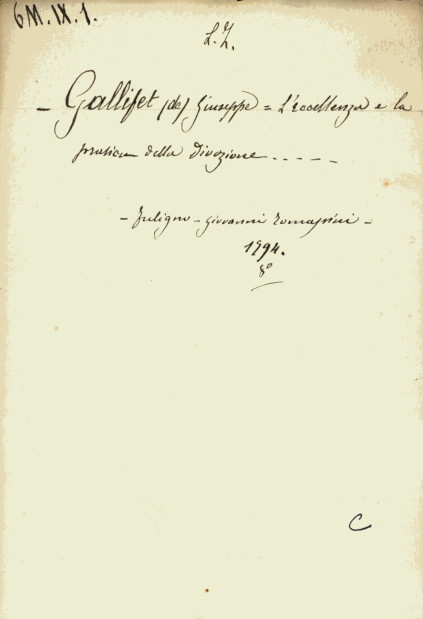 6M.IX.1.
L.Z.
– Gallifet (de) Giuseppe = L'eccellenza e la
pratica della divozione - - - - -
– Fuligno – Giovanni Tomassini –
1794.
8°
C